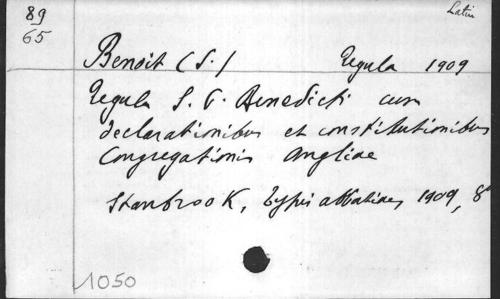 89
65
Latin
Benoit (S.) Regula 1909
Regula S. P. Benedicti cum
declarationibus et constitutionibus
Congregationis Angliae
Stanbrook, typis abbatiae, 1909, 8°
1050